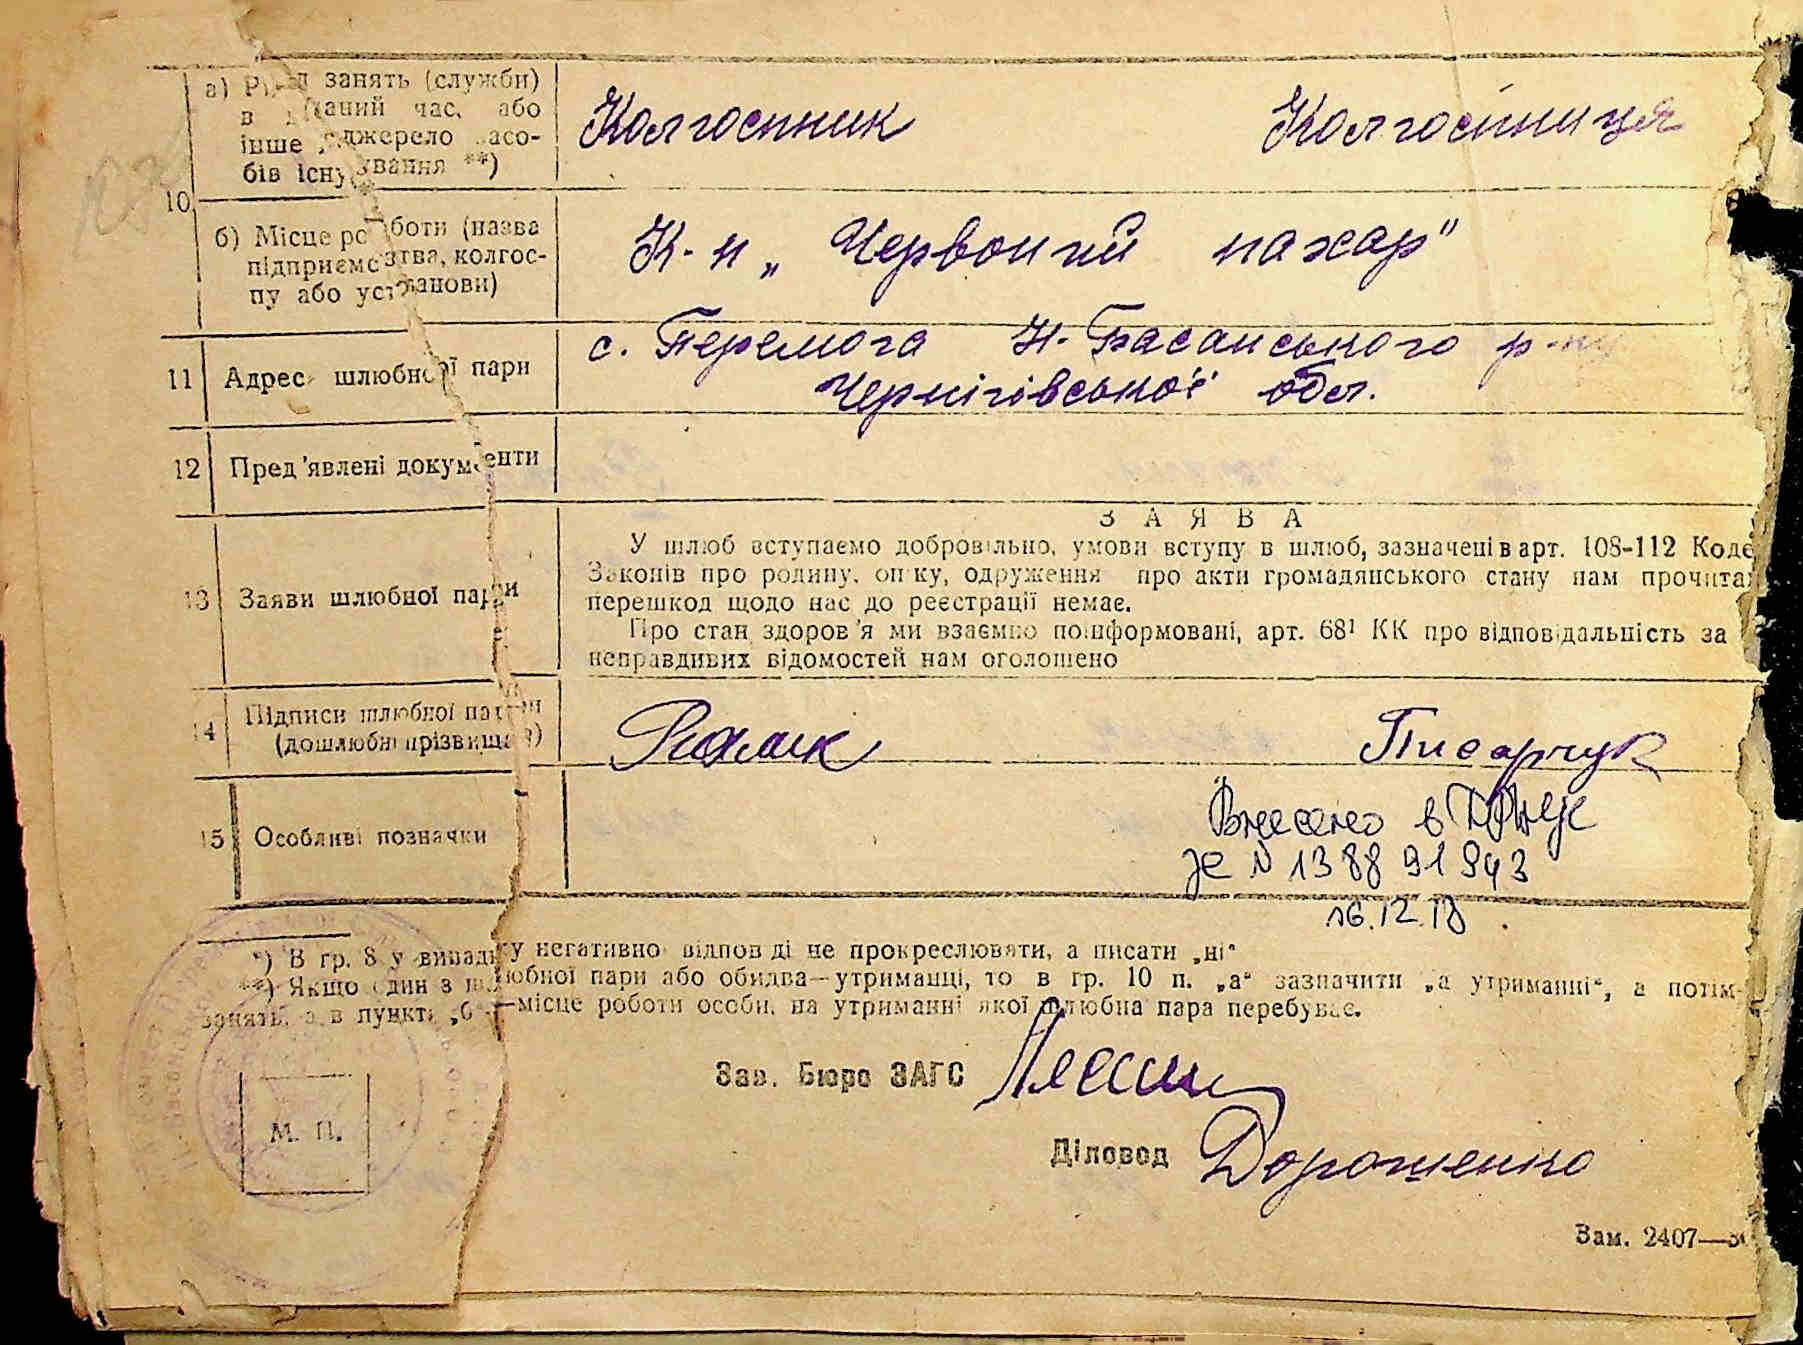 10
а) Рід занять (служби)
в даний час, або
інше джерело засо-
бів існування **)
Колгоспник Колгоспниця
б) Місце роботи (назва
підприємства, колгос-
пу або установи)
К-п „Червоний пахар"
11 Адрес шлюбної пари
с. Перемога Н-Басанського р-ну
Чернігівської обл.
12 Пред'явлені документи
13 Заяви шлюбної пари
ЗАЯВА
У шлюб вступаємо добровільно, умови вступу в шлюб, зазначені в арт. 108-112 Коде
Законів про родину, опіку, одруження про акти громадянського стану нам прочита
перешкод щодо нас до реєстрації немає.
Про стан здоров'я ми взаємно поінформовані, арт. 68¹ КК про відповідальність за
неправдивих відомостей нам оголошено
14 Підписи шлюбної пари
(дошлюбні прізвища)
Писарчук
15 Особливі позначки
Внесено в
№ 1388 91 943
16.12.18
*) В гр. 8 у випадку негативної відповіді не прокреслювати, а писати „ні"
**) Якщо один з шлюбної пари або обидва—утриманці, то в гр. 10 п. „а" зазначити „а утриманні", а потім
занять, а в пункті „б"—місце роботи особи, на утриманні якої шлюбна пара перебуває.
Зав. Бюро ЗАГС
М. П.
Діловод Дорошенко
Зам. 2407—